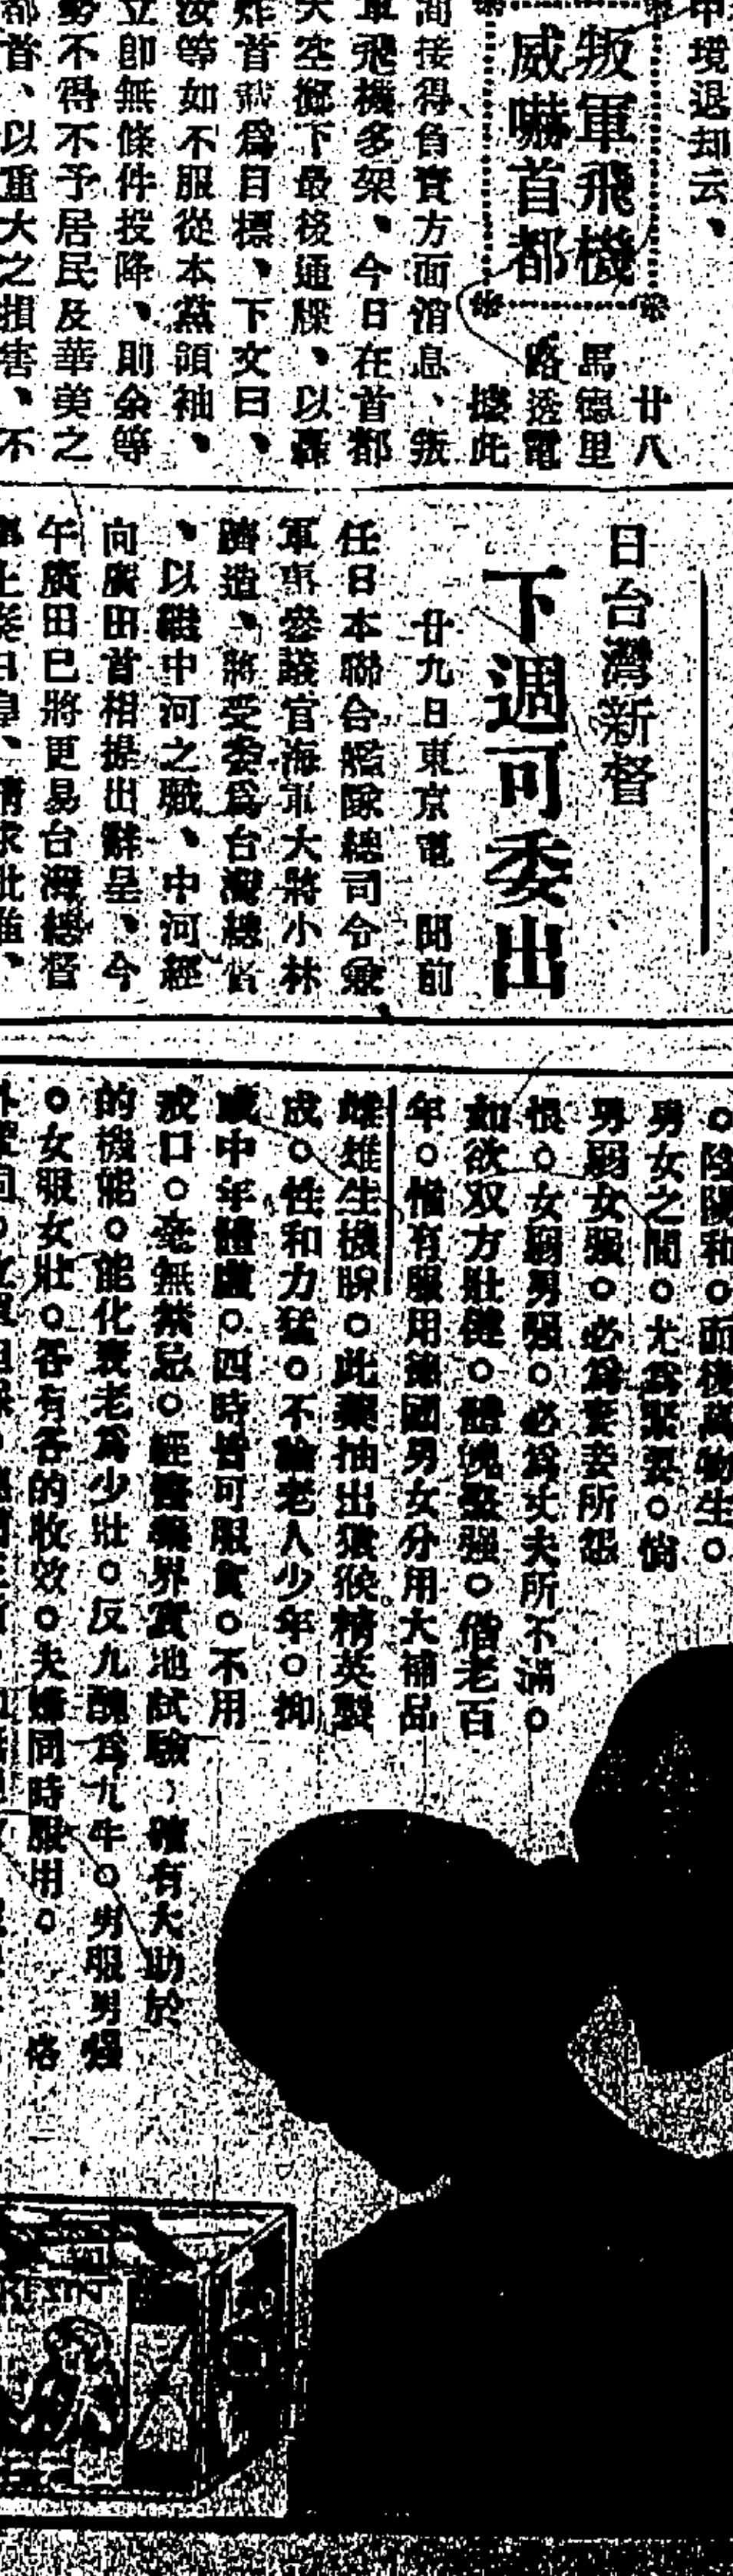 申境退却云、
叛軍飛機
威嚇首都
廿八
馬德里
路透電
據此
間接得負責方面消息、叛
軍飛機多架、今日在首都
天空擲下最後通牒、以轟
炸首都爲目標、下文曰、
汝等如不服從本黨領袖、
立卽無條件投降、則余等
勢不得不予居民及華美之
都首、以重大之損害、不
日台灣新督
下週可委出
廿九日東京電 聞前
任日本聯合艦隊總司令兼
軍事參議官海軍大將小林
躋造、將受委爲台灣總督
、以繼中河之職、中河經
向廣田首相提出辭呈、今
午廣田已將更易台灣總督
上奏日皇、請求批准、
。陰陽和。而後萬物生。
男女之間。尤爲緊要。倘
男弱女強。必爲妻妾所怨
恨。女弱男強。必爲丈夫所不滿。
如欲双方壯健。體魄堅強。偕老百
年。惟有服用德國男女分用大補品
雌雄生機牌。此藥抽出猿猴精英製
成。性和力猛。不論老人少年。抑
或中年體虛。四時皆可服食。不用
戒口。毫無禁忌。經醫藥界實地試驗。確有大助於
的機能。能化衰老爲少壯。反九醜爲九牛。男服男強
。女服女壯。各有各的收效。夫婦同時服用。